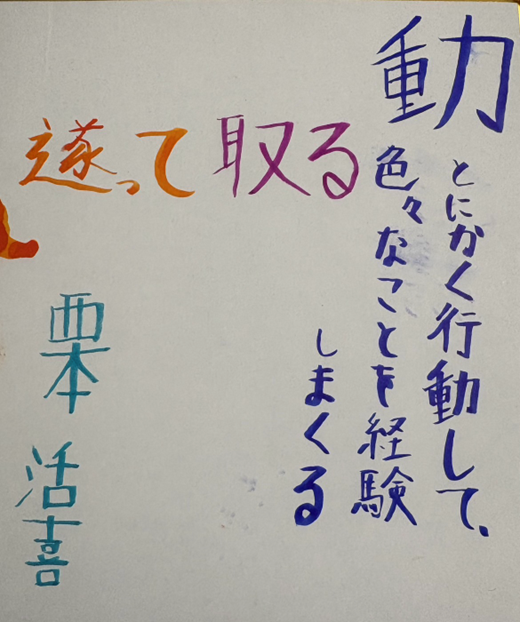 動
とにかく行動して、
色々なことを経験
しまくる
取る
遂って
栗本
活喜